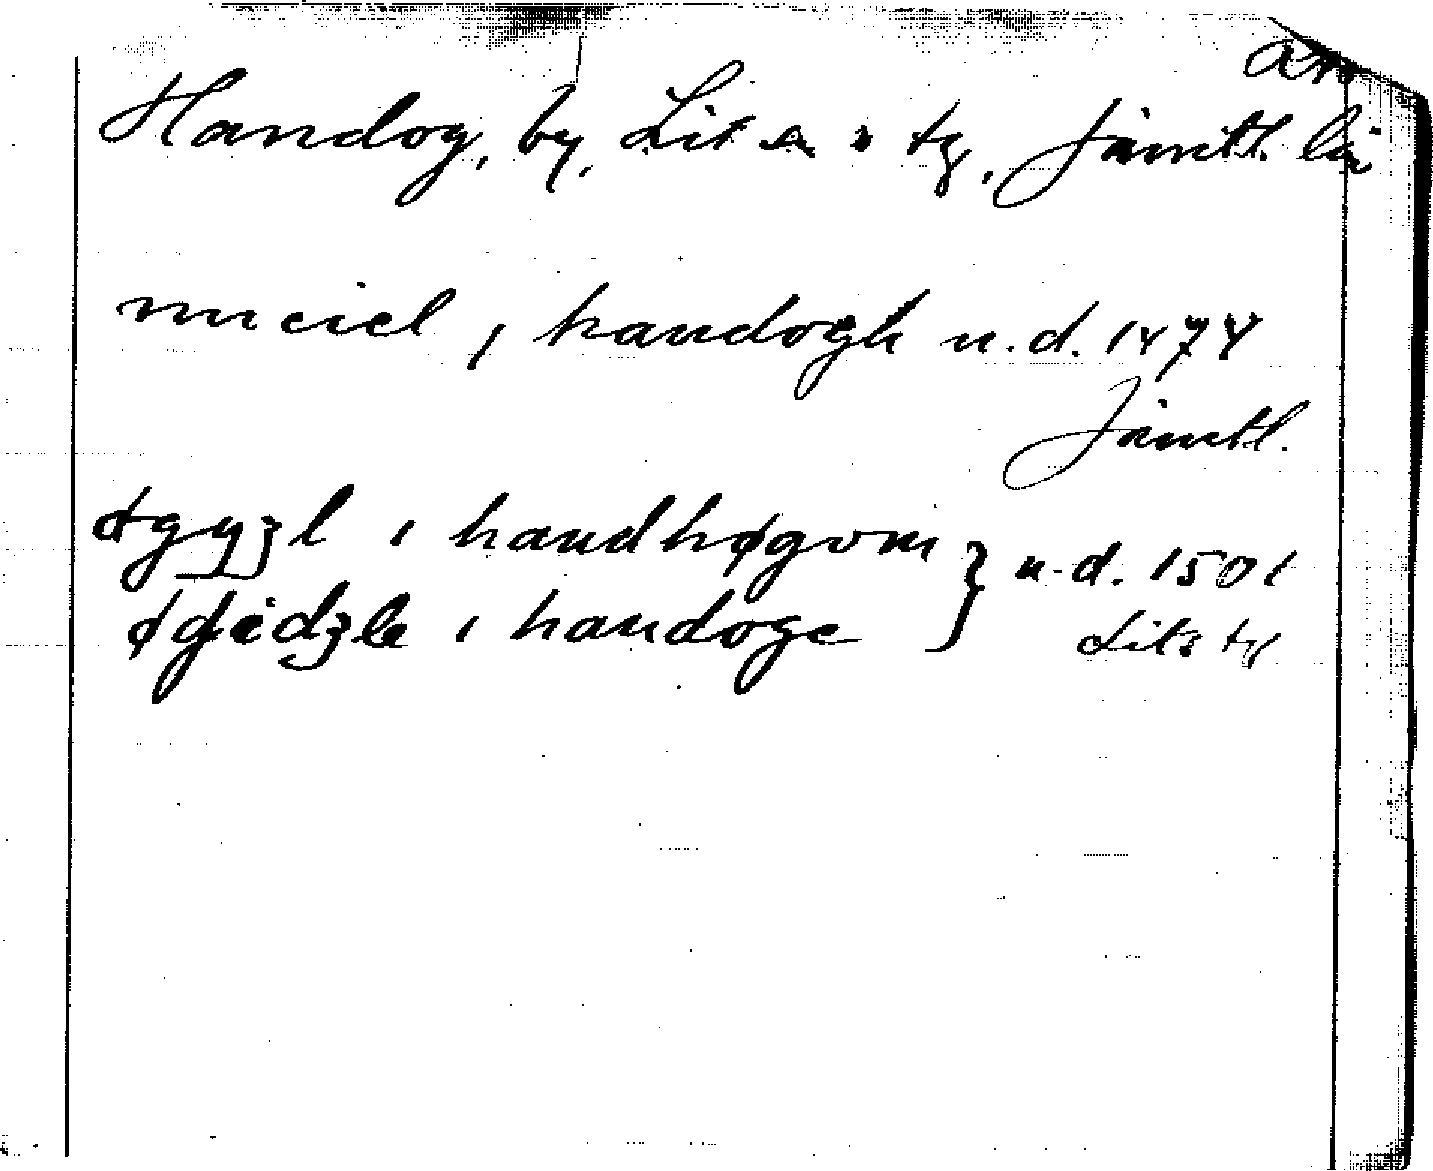 Handog, by, Lits sn o tg, Jämtl. län
miciel i handogh u.d. 1474
Jämtl.
øgyzl i handhøgom } u.d. 1501
øgiedzle i handoge } Lits tg